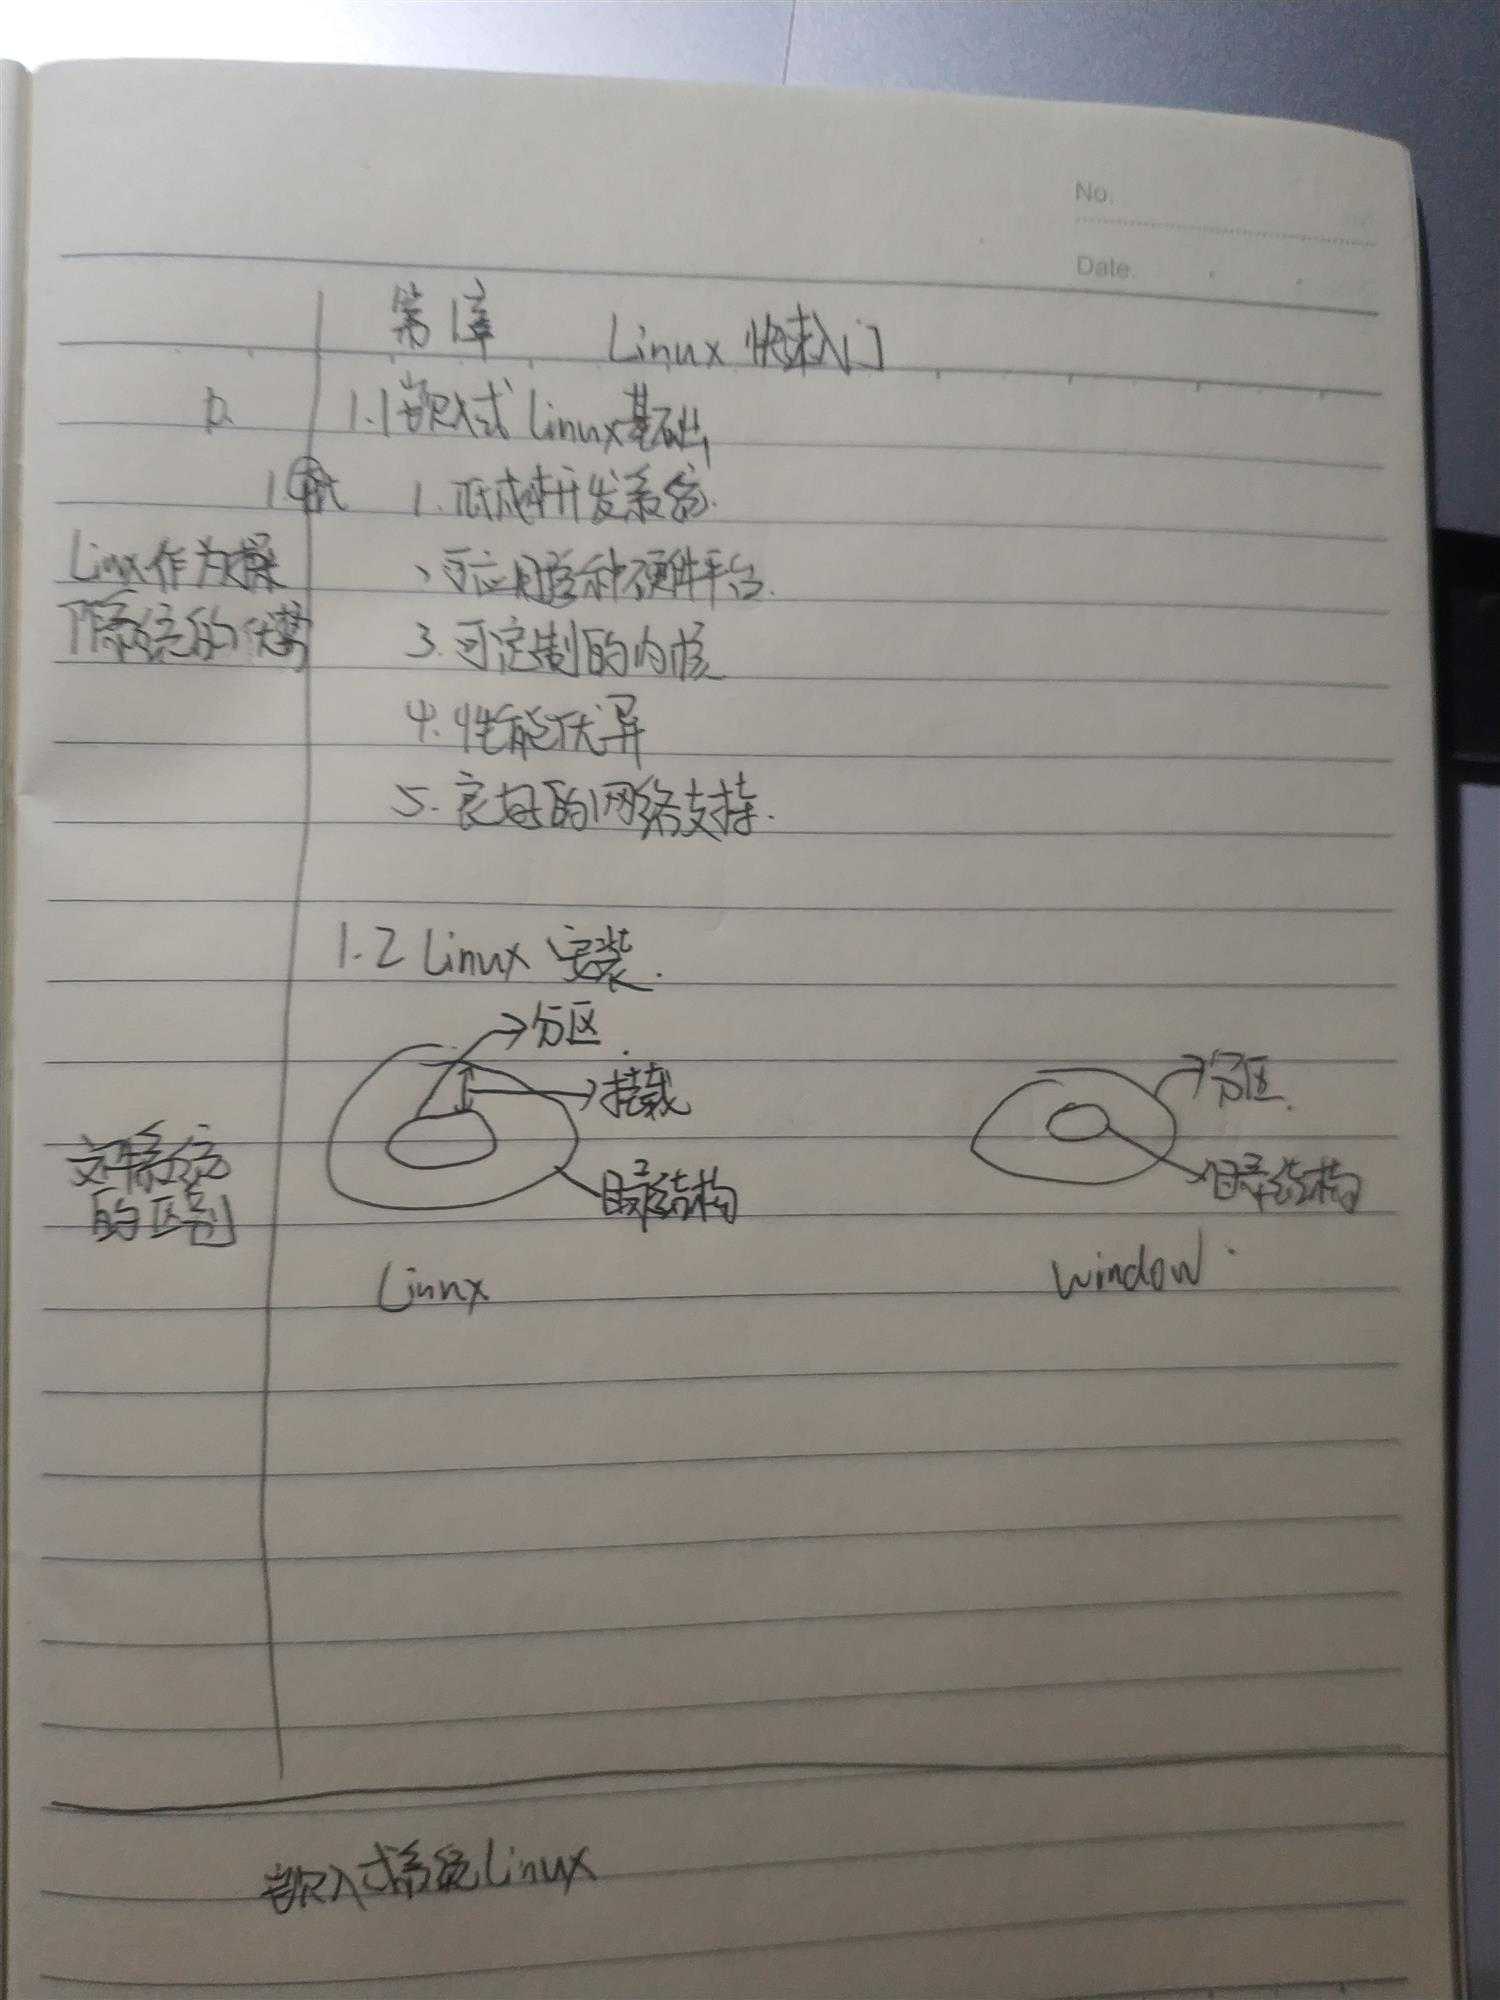 No.
Date.
第1章 Linux 快速入门
1.1 嵌入式 Linux基础
1.
1. 低成本开发系统.
Linx作为操
作系统的优势
、可应用多种硬件平台.
3. 可定制的内核
4. 性能优异
5. 良好的网络支持.
1.2 Linux 安装.
分区.
挂载
目录结构
Linux
分区.
目录结构
window.
文件系统
的区别
嵌入式系统Linux